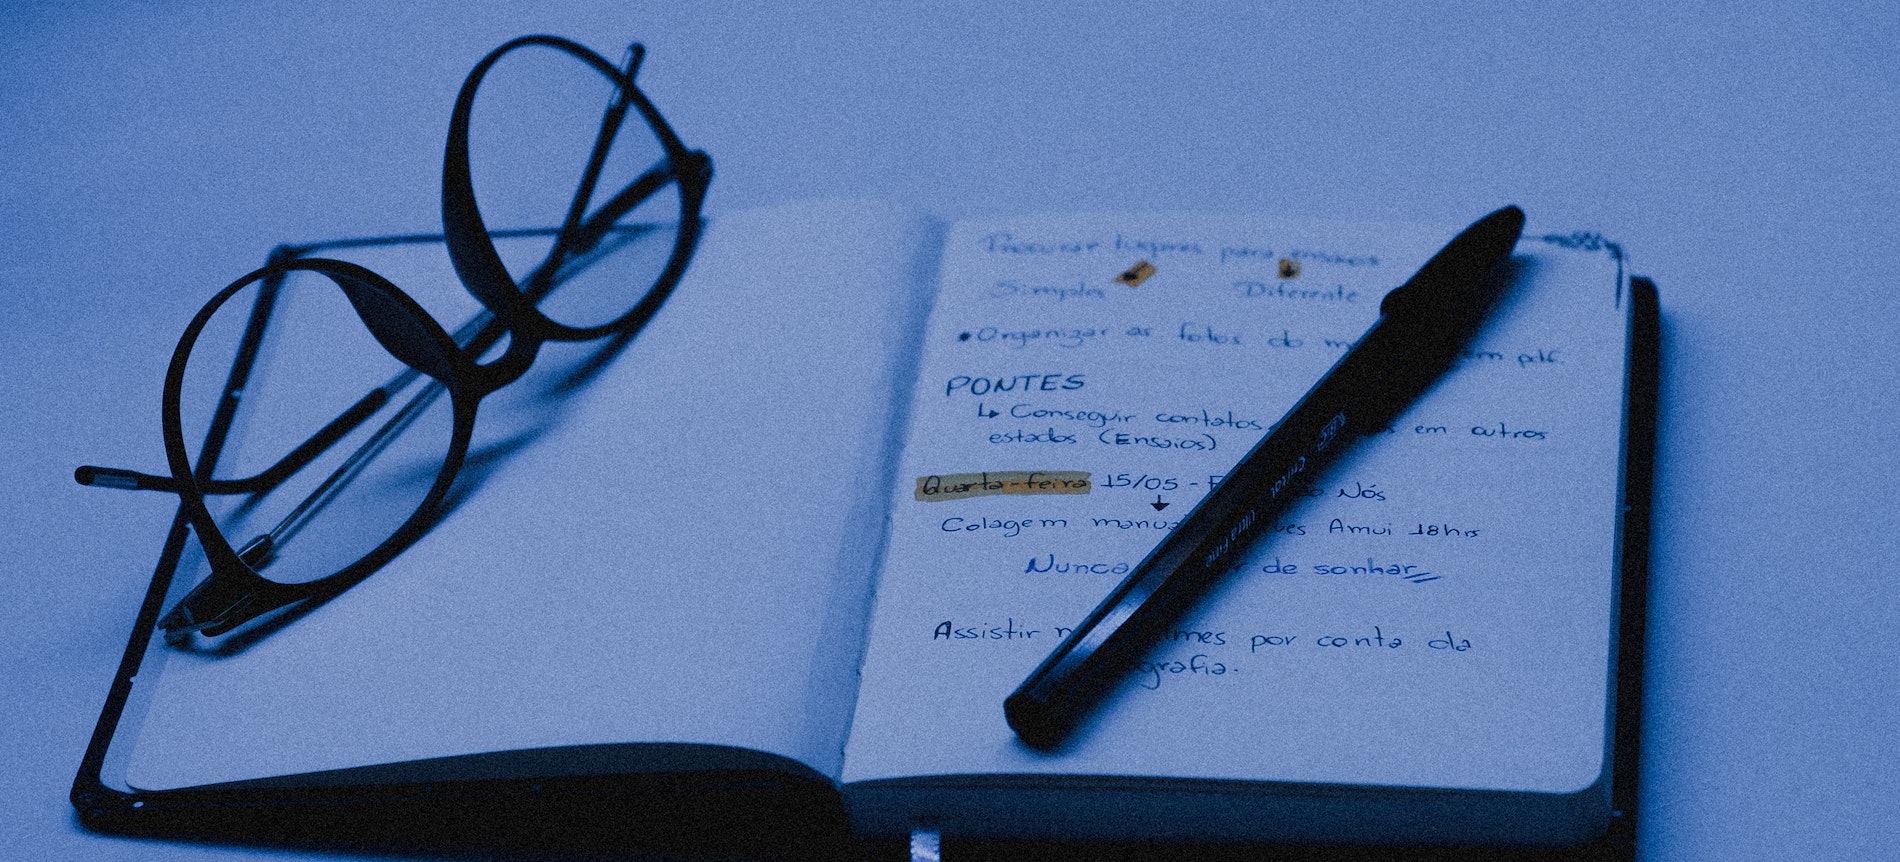 Procurar lugares para ensaios
Simples Diferente
•Organizar as fotos do em pdf.
PONTES
↳ Conseguir contatos em outros
estados (Ensaios)
Quarta-feira 15/05 - Nós
↓
Colagem Amui 18hrs
Nunca de sonhar
Assistir por conta da
Cristal Ultra Fine